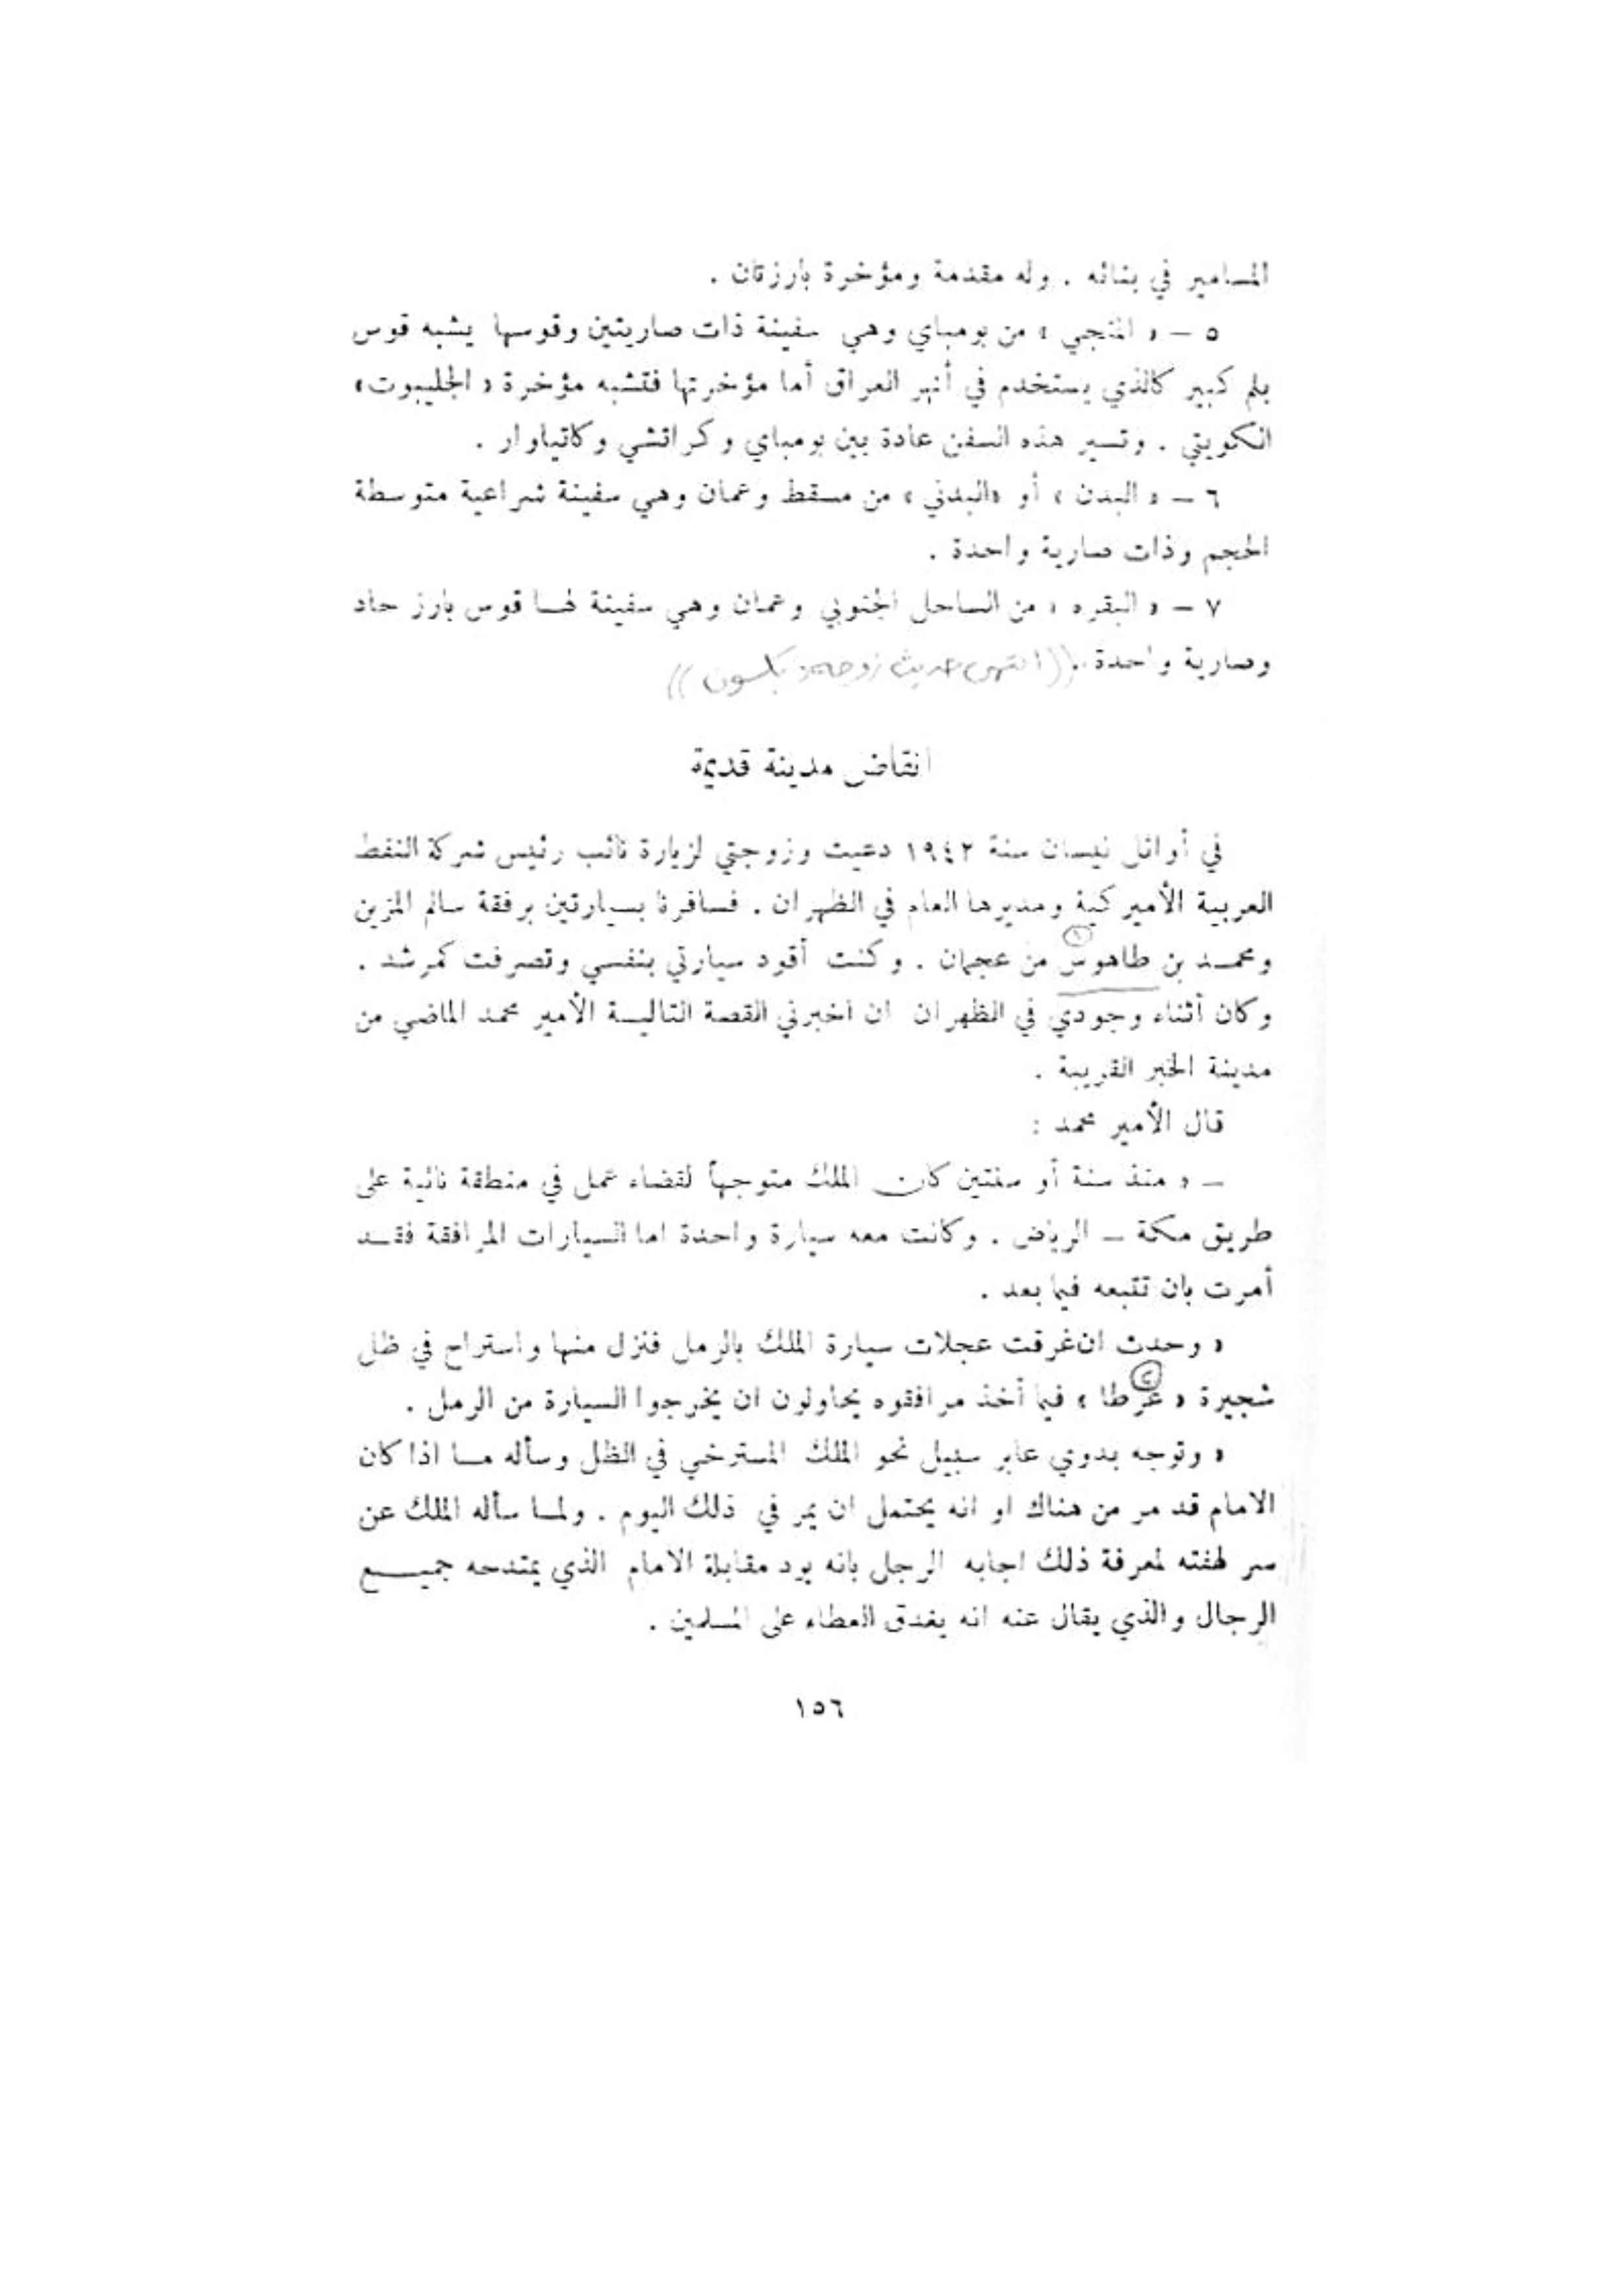 المسامير في بنائه . وله مقدمة ومؤخرة بارزتان .
٥ – « المنجي » من بومباي وهي سفينة ذات صاريتين وقوسها يشبه قوس
بلم كبير كالذي يستخدم في أنهر العراق أما مؤخرتها فتشبه مؤخرة « الجليبوت »
الكويتي . وتسير هذه السفن عادة بين بومباي وكراتشي وكاتياوار .
٦ – « البدن » أو «البدني » من مسقط وعمان وهي سفينة شراعية متوسطة
الحجم وذات صارية واحدة .
٧ – « البقره » من الساحل الجنوبي وعمان وهي سفينة لهـا قوس بارز حاد
وصارية واحدة . (( انتهى حديث زوجة ديكسون ))
انقاض مدينة قديمة
في أوائل نيسان سنة ١٩٤٢ دعيت وزوجتي لزيارة نائب رئيس شركة النفط
العربية الأميركية ومديرها العام في الظهران . فسافرنا بسيارتين برفقة سالم المزين
ومحمـد بن طاهوس (١) من عجمان . وكنت أقود سيارتي بنفسي وتصرفت كمرشد .
وكان أثناء وجودي في الظهران ان اخبرني القصة التاليـة الأمير محمد الماضي من
مدينة الخبر القريبة .
قال الأمير محمد :
– « منذ سنة أو سنتين كان الملك متوجهاً لقضاء عمل في منطقة نائية على
طريق مكة – الرياض . وكانت معه سيارة واحدة اما السيارات المرافقة فقـد
أمرت بان تتبعه فيما بعد .
« وحدث ان غرقت عجلات سيارة الملك بالرمل فنزل منها واستراح في ظل
شجيرة « عرطا » (٢) فيما أخذ مرافقوه يحاولون ان يخرجوا السيارة من الرمل .
« وتوجه بدوي عابر سبيل نحو الملك المسترخي في الظل وسأله مـا اذا كان
الامام قد مر من هناك او انه يحتمل ان يمر في ذلك اليوم . ولمـا سأله الملك عن
سر لهفته لمعرفة ذلك اجابه الرجل بانه يود مقابلة الامام الذي يمتدحه جميـع
الرجال والذي يقال عنه انه يغدق العطاء على المسلمين .
١٥٦